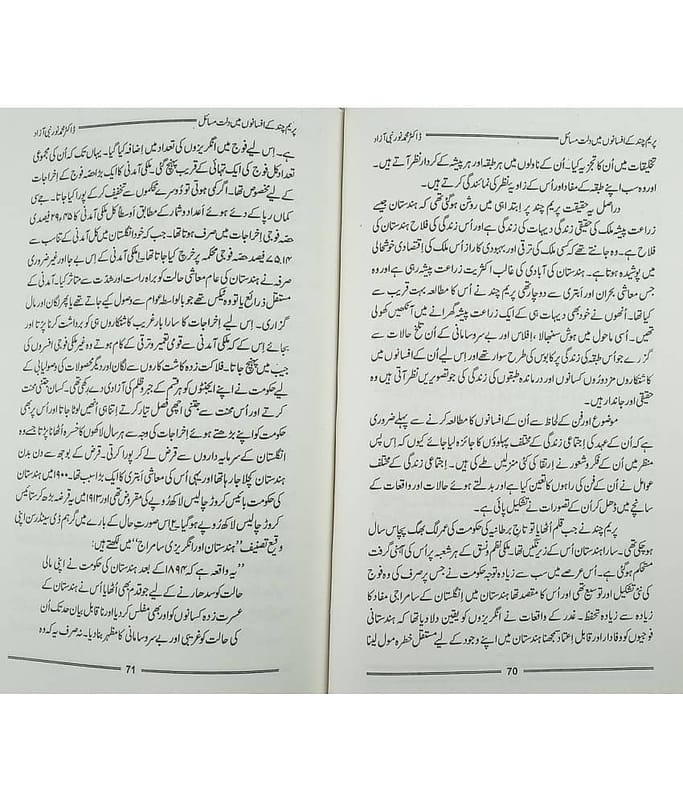 پریم چند کے افسانوں میں دلت مسائل ڈاکٹر محمد نور نبی آزاد
تخلیقات میں اُن کا تجزیہ کیا۔ اُن کے ناولوں میں ہر طبقہ اور ہر پیشہ کے کردار نظر آتے ہیں۔
اور وہ سب اپنے طبقہ کے مفاد اور اُس کے زاویہ نظر کی نمائندگی کرتے ہیں۔
دراصل یہ حقیقت پریم چند پر ابتدا ہی میں روشن ہوگئی تھی کہ ہندستان جیسے
زراعت پیشہ ملک کی حقیقی زندگی دیہات کی زندگی ہے اور اُس کی فلاح ہندستان کی
فلاح ہے۔ وہ جانتے تھے کہ کسی ملک کی ترقی اور بہبودی کا راز اُس ملک کی اِقتصادی خوشحالی
میں پوشیدہ ہوتا ہے۔ ہندستان کی آبادی کی غالب اکثریت زراعت پیشہ رہی ہے اور وہ
جس معاشی بحران اور ابتری سے دوچار تھی پریم چند نے اُس کا مطالعہ بہت قریب سے
کیا تھا۔ اُنھوں نے خود بھی دیہات ہی کے ایک زراعت پیشہ گھرانے میں آنکھیں کھولی
تھیں۔ اُسی ماحول میں ہوش سنبھالا، اِفلاس اور بے سروسامانی کے اُن تلخ حالات سے
گزرے جو اُس طبقہ کی زندگی پر کابوس کی طرح سوار تھے اور اِسی لیے اُن کے افسانوں میں
کاشتکاروں مزدوروں کسانوں اور درماندہ طبقوں کی زندگی کی جو تصویریں نظر آتی ہیں وہ
حقیقی اور جاندار ہیں۔
موضوع اور فن کے لحاظ سے اُن کے افسانوں کا مطالعہ کرنے سے پہلے ضروری
ہے کہ اُن کے عہد کی اِجتماعی زندگی کے مختلف پہلوؤں کا جائزہ لیا جائے کیوں کہ اِس پس
منظر میں اُن کے فکر و شعور نے ارتقا کی کئی منزلیں طے کی ہیں۔ اِجتماعی زندگی کے مختلف
عوامل نے اُن کے فن کی راہوں کا تعین کیا ہے اور بدلتے ہوئے حالات اور واقعات کے
سانچے میں ڈھل کر اُن کے تصورات نے تشکیل پائی ہے۔
پریم چند نے جب قلم اُٹھایا تو تاج برطانیہ کی حکومت کی عمر لگ بھگ پچاس سال
ہوچکی تھی۔ سارا ہندستان اُس کے زیر نگیں تھا۔ ملکی نظم و نسق کے ہر شعبہ پر اُس کی آہنی گرفت
مستحکم ہوگئی ہے۔ اُس عرصے میں سب سے زیادہ توجہ حکومت نے جس پر صرف کی وہ فوج
کی نئی تشکیل اور توسیع تھی اور اُس کا مقصد تھا ہندستان میں انگلستان کے سامراجی مفاد کا
زیادہ سے زیادہ تحفظ۔ غدر کے واقعات نے انگریزوں کو یقین دلا دیا تھا کہ ہندستانی
فوجیوں کو وفادار اور قابل اِعتماد سمجھنا ہندستان میں اپنے وجود کے لیے مستقل خطرہ مول لینا
70
پریم چند کے افسانوں میں دلت مسائل ڈاکٹر محمد نور نبی آزاد
ہے۔ اِس لیے فوج میں انگریزوں کی تعداد میں اضافہ کیا گیا۔ یہاں تک کہ اُن کی مجموعی
تعداد کل فوج کی ایک تہائی کے قریب پہنچ گئی۔ ملکی آمدنی کا ایک بڑا حصہ فوج کے اخراجات
کے لیے مخصوص تھا۔ اگر کمی ہوتی تو دُوسرے محکموں سے تخفیف کرکے پورا کیا جاتا۔ جے سی
کماں رپا کے دئے ہوئے اعداد و شمار کے مطابق اوسطاً کل آمدنی کا ۲۹،۴۵ فیصدی
حصہ فوجی اخراجات میں صرف ہوتا تھا۔ جب کہ خود انگلستان میں کل آمدنی کے تناسب سے
فیصد حصہ فوجی محکمہ پر خرچ کیا جاتا تھا۔ ملکی آمدنی کے اِس بے جا اور غیر ضروری
صرفہ نے ہندستان کی عام معاشی حالت کو براہ راست اور شدت سے متاثر کیا۔ آمدنی کے
مستقل ذرائع یا تو وہ ٹیکس تھے جو بالواسطہ عوام سے وصول کیے جاتے تھے یا پھر لگان اور مال
گزاری۔ اِس لیے اخراجات کا سارا بار غریب کاشتکاروں ہی کو برداشت کرنا پڑتا اور
بجائے اِس کے کہ ملکی آمدنی سے قومی تعمیر و ترقی کے کام ہوتے وہ غیر ملکی فوجی افسروں کی
جیب میں پہنچ جاتا۔ فلاکت زدہ کاشت کاروں سے لگان اور دیگر محصولات کی وصولیابی کے
لیے حکومت نے اپنے ایجنٹوں کو ہر قسم کے جبر و ظلم کی آزادی دے رکھی تھی۔ کسان جتنی محنت
کرتے اور اُس محنت سے جتنی اچھی فصل تیار کرتے اِتنا ہی انھیں لوٹا جاتا اور اُس پر بھی
حکومت کو اپنے بڑھتے ہوئے اِخراجات کی وجہ سے ہر سال لاکھوں کا خسارہ اُٹھانا پڑتا جسے وہ
انگلستان کے سرمایہ داروں سے قرض لے کر پورا کرتی۔ قرض کے بوجھ سے دن بدن
ہندستان کچلا جا رہا تھا اور یہی اُس کی معاشی ابتری کا ایک بڑا سبب تھا۔ ۱۹۰۰ میں ہندستان
کی حکومت بائیس کروڑ چالیس لاکھ رُوپے کی مقروض تھی اور ۱۹۱۳ میں یہ قرضہ بڑھ کر ستائیس
کروڑ چالیس لاکھ رُوپے ہوگیا۔ اُس صورتِ حال کے بارے میں گرہم ڈی سینڈرسن اپنی
وقیع تصنیف ”ہندستان اور انگریزی سامراج“ میں لکھتے ہیں:
”یہ واقعہ ہے کہ ۱۸۹۴ کے بعد ہندستان کی حکومت نے اپنی مالی
حالت کو سدھارنے کے لیے جو قدم بھی اُٹھایا اُس نے ہندستان کے
عسرت زدہ کسانوں کو اور بھی مفلس کر دیا اور ناقابل بیان حد تک اُن
کی حالت کو غریبی اور بے سروسامانی کا مظہر بنا دیا۔ نہ صرف یہ کہ وہ
71